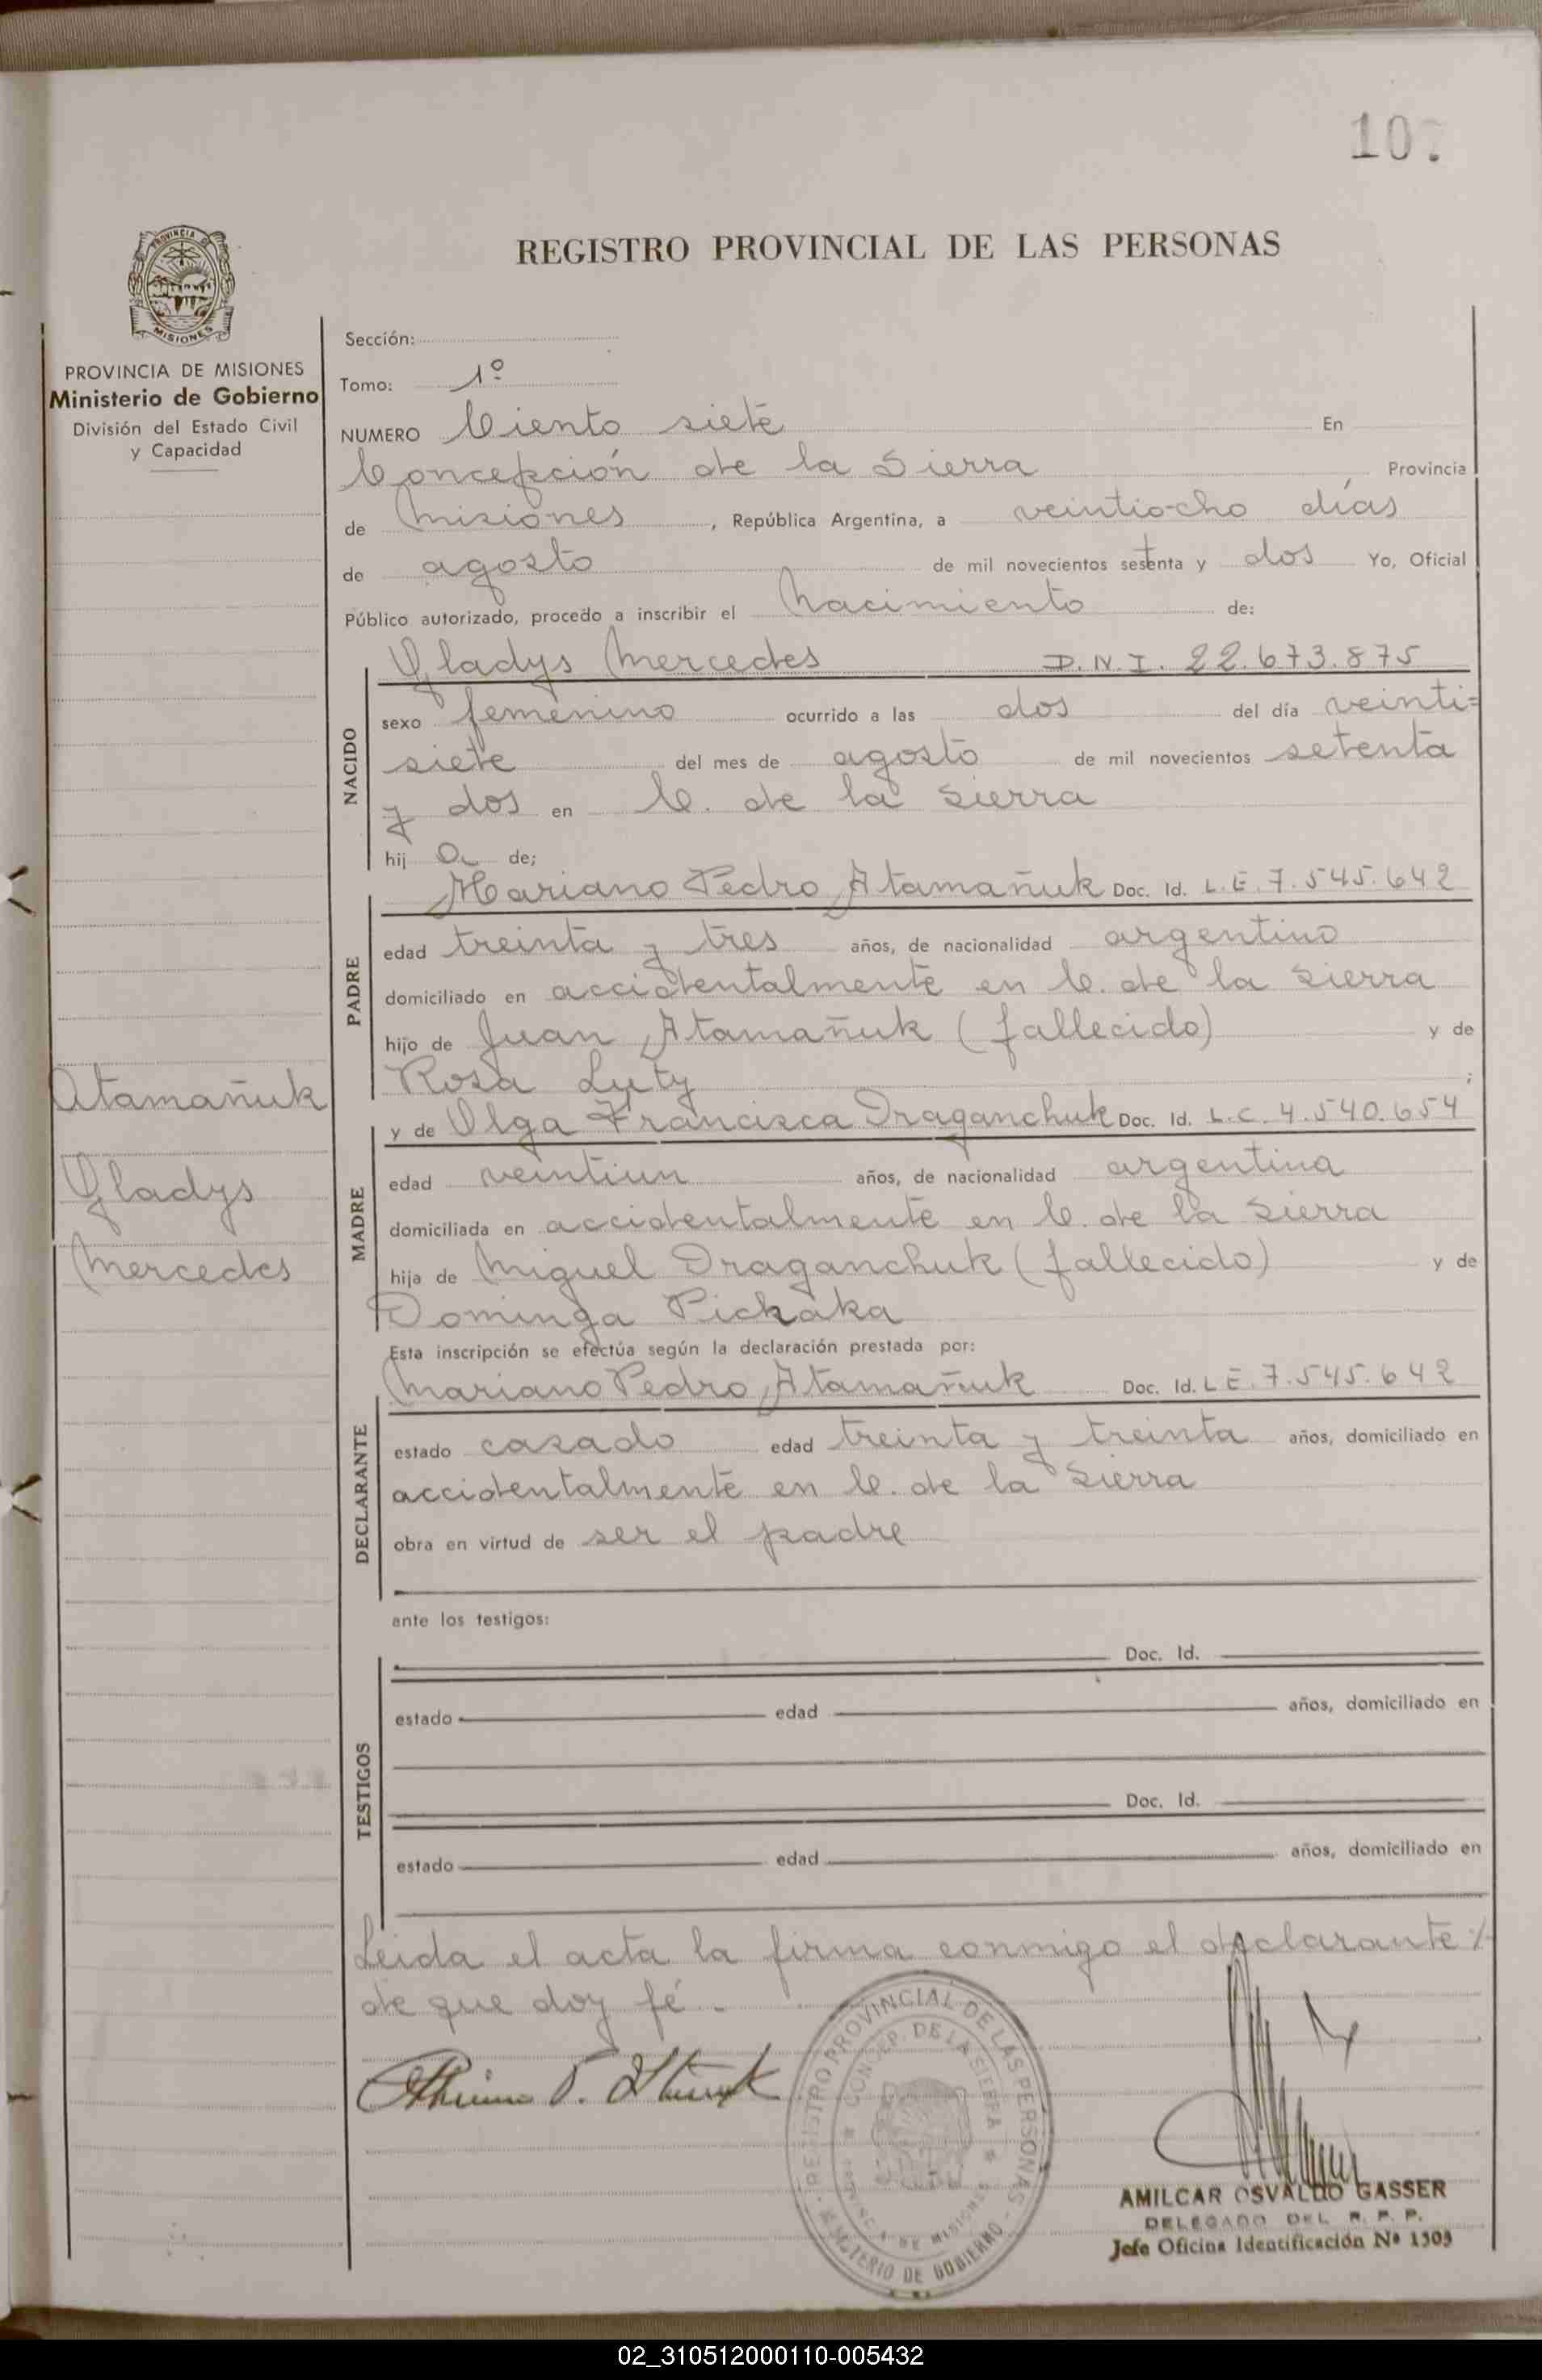 107
REGISTRO PROVINCIAL DE LAS PERSONAS
PROVINCIA DE MISIONES
PROVINCIA DE MISIONES
Ministerio de Gobierno
División del Estado Civil
y Capacidad
Sección:
Tomo: 1º
NUMERO Ciento siete En
Concepción de la Sierra Provincia
de Misiones, República Argentina, a veintiocho días
de agosto de mil novecientos setenta y dos Yo, Oficial
Público autorizado, procedo a inscribir el Nacimiento de:
NACIDO
Gladys Mercedes D.N.I. 22.673.875
sexo femenino ocurrido a las dos del día veinti=
siete del mes de agosto de mil novecientos setenta
y dos en C. de la Sierra
hij a de;
PADRE
Mariano Pedro Atamañuk Doc. Id. L.E. 7.545.642
edad treinta y tres años, de nacionalidad argentino
domiciliado en accidentalmente en C. de la Sierra
hijo de Juan Atamañuk (fallecido) y de
Rosa Luty ;
MADRE
y de Olga Francisca Draganchuk Doc. Id. L.C. 4.540.654
edad veintiun años, de nacionalidad argentina
domiciliada en accidentalmente en C. de la Sierra
hija de Miguel Draganchuk (fallecido) y de
Dominga Pickaka
Atamañuk
Gladys
Mercedes
Esta inscripción se efectúa según la declaración prestada por:
DECLARANTE
Mariano Pedro Atamañuk Doc. Id. L.E. 7.545.642
estado casado edad treinta y treinta años, domiciliado en
accidentalmente en C. de la Sierra
obra en virtud de ser el padre
ante los testigos:
TESTIGOS
Doc. Id.
estado edad años, domiciliado en
Doc. Id.
estado edad años, domiciliado en
Leida el acta la firma conmigo el declarante %
de que doy fé.-
REGISTRO PROVINCIAL DE LAS PERSONAS
CONCEP. DE LA SIERRA
PROVINCIA DE MISIONES
MINISTERIO DE GOBIERNO
AMILCAR OSVALDO GASSER
DELEGADO DEL R. P. P.
Jefe Oficina Identificación Nº 1303
02_310512000110-005432